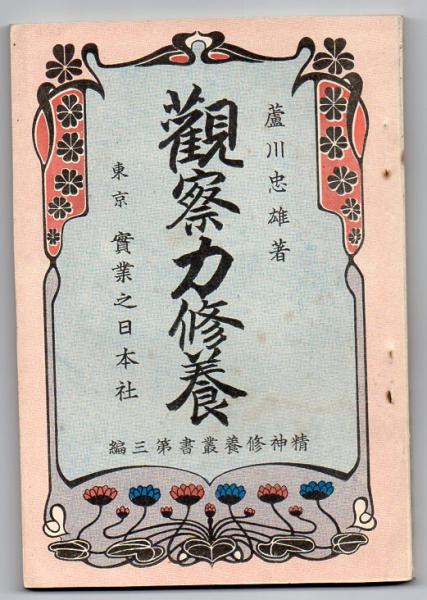 蘆川忠雄著
觀察力修養
東京 實業之日本社
精神修養叢書第三編